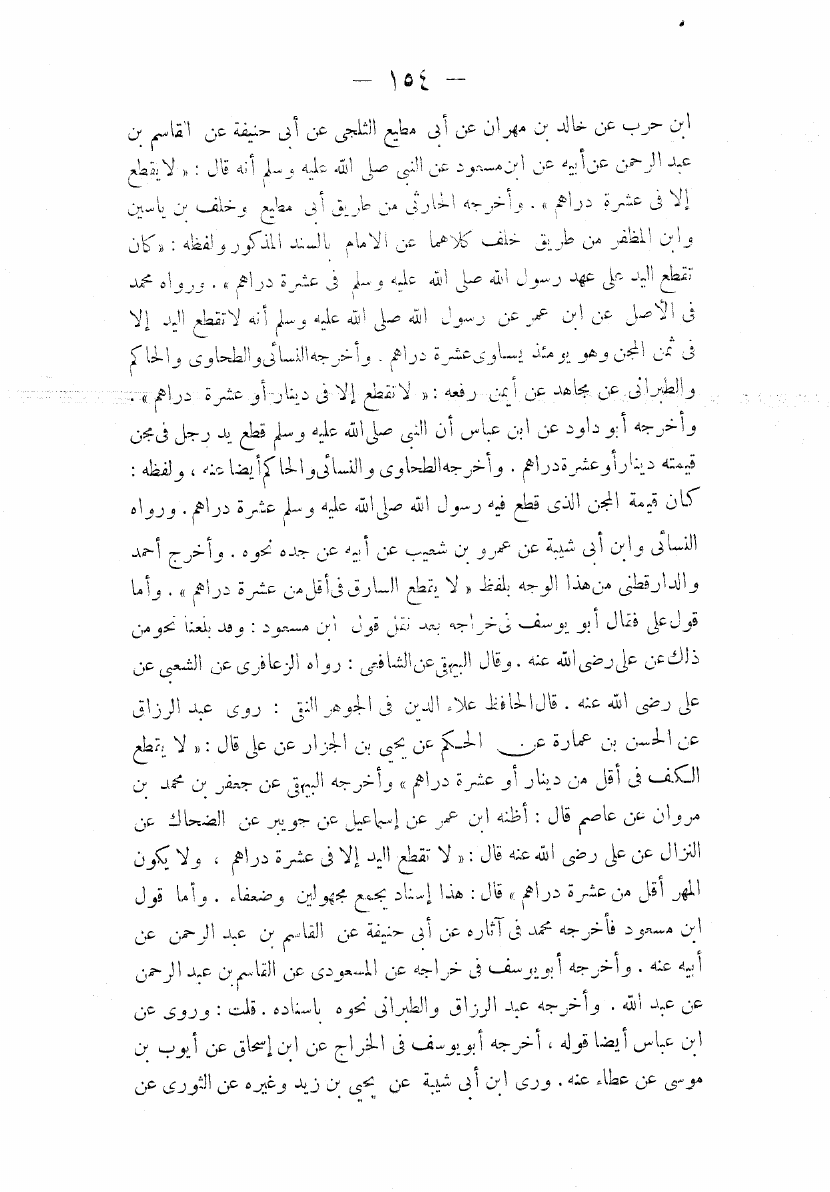 — ١٥٤ —
ابن حرب عن خالد بن مهران عن أبى مطيع الثلجى عن أبى حنيفة عن القاسم بن
عبد الرحمن عن أبيه عن ابن مسعود عن النبى صلى الله عليه وسلم أنه قال : « لا يقطع
إلا فى عشرة دراهم » . وأخرجه الحارثى من طريق أبى مطيع وخلف بن ياسين
وابن المظفر من طريق خلف كلاهما عن الامام بالسند المذكور ولفظه : « كان
تقطع اليد على عهد رسول الله صلى الله عليه وسلم فى عشرة دراهم » . ورواه محمد
فى الأصل عن ابن عمر عن رسول الله صلى الله عليه وسلم أنه لا تقطع اليد إلا
فى ثمن المجن وهو يومئذ يساوى عشرة دراهم . وأخرجه النسائى والطحاوى والحاكم
والطبرانى عن مجاهد عن أيمن رفعه : « لا تقطع إلا فى دينار أو عشرة دراهم » .
وأخرجه أبو داود عن ابن عباس أن النبى صلى الله عليه وسلم قطع يد رجل فى مجن
قيمته دينار أو عشرة دراهم . وأخرجه الطحاوى والنسائى والحاكم أيضا عنه ، ولفظه :
كان قيمة المجن الذى قطع فيه رسول الله صلى الله عليه وسلم عشرة دراهم . ورواه
النسائى وابن أبى شيبة عن عمرو بن شعيب عن أبيه عن جده نحوه . وأخرج أحمد
والدارقطنى من هذا الوجه بلفظ « لا يقطع السارق فى أقل من عشرة دراهم » . وأما
قول على فقال أبو يوسف فى خراجه بعد نقل قول ابن مسعود : وقد بلغنا نحو من
ذلك عن على رضى الله عنه . وقال البيهقى عن الشافعى : رواه الزعافرى عن الشعبى عن
على رضى الله عنه . قال الحافظ علاء الدين فى الجوهر النقى : روى عبد الرزاق
عن الحسن بن عمارة عن الحكم عن يحيى بن الجزار عن على قال : « لا يقطع
الكف فى أقل من دينار أو عشرة دراهم » وأخرجه البيهقى عن جعفر بن محمد بن
مروان عن عاصم قال : أظنه ابن عمر عن إسماعيل عن جويبر عن الضحاك عن
النزال عن على رضى الله عنه قال : « لا تقطع اليد إلا فى عشرة دراهم ، ولا يكون
المهر أقل من عشرة دراهم » قال : هذا إسناد يجمع مجهولين وضعفاء . وأما قول
ابن مسعود فأخرجه محمد فى آثاره عن أبى حنيفة عن القاسم بن عبد الرحمن عن
أبيه عنه . وأخرجه أبو يوسف فى خراجه عن المسعودى عن القاسم بن عبد الرحمن
عن عبد الله . وأخرجه عبد الرزاق والطبرانى نحوه باسناده . قلت : وروى عن
ابن عباس أيضا قوله ، أخرجه أبو يوسف فى الخراج عن ابن إسحاق عن أيوب بن
موسى عن عطاء عنه . ورى ابن أبى شيبة عن يحيى بن زيد وغيره عن الثورى عن